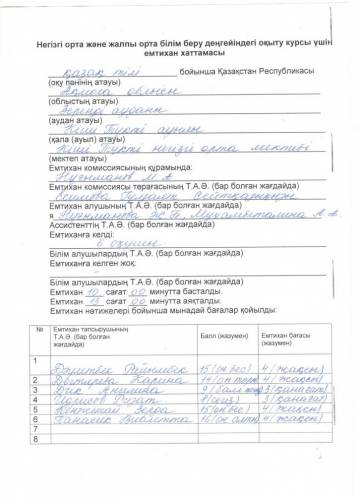 Негізгі орта және жалпы орта білім беру деңгейіндегі оқыту курсы үшін
емтихан хаттамасы
қазақ тілі бойынша Қазақстан Республикасы
(оқу пәнінің атауы)
Ақмола облысы
(облыстың атауы)
Зеренді ауданы
(аудан атауы)
Кіші Түкті ауылы
(қала (ауыл) атауы)
Кіші Түкті негізгі орта мектебі
(мектеп атауы)
Емтихан комиссиясының құрамында:
М А
Емтихан комиссиясы терағасының Т.А.Ә. (бар болған жағдайда)
Есимова
Емтихан алушының Т.А.Ә. (бар болған жағдайда)
Мухаметгалина А
Ассистенттің Т.А.Ә. (бар болған жағдайда)
Емтиханға келді:
6 оқушы
Білім алушылардың Т.А.Ә. (бар болған жағдайда)
Емтиханға келген жоқ:
Білім алушылардың Т.А.Ә. (бар болған жағдайда)
Емтихан 10 сағат 00 минутта басталды.
Емтихан 13 сағат 00 минутта аяқталды.
Емтихан нәтижелері бойынша мынадай бағалар қойылды:
№ Емтихан тапсырушының Т.А.Ә. (бар болған жағдайда) Балл (жазумен) Емтихан бағасы (жазумен)
1 Райымбек 15 (он бес) 4 (жақсы)
2 Карина 14 (он төрт) 4 (жақсы)
3 Дик Анжелика 9 3 (қанағат)
4 Идрисов Ризат 8 (сегіз) 3 (қанағат)
5 15 (он бес) 4 (жақсы)
6 Панасик Виолетта 16 (он алты) 4 (жақсы)
7
8